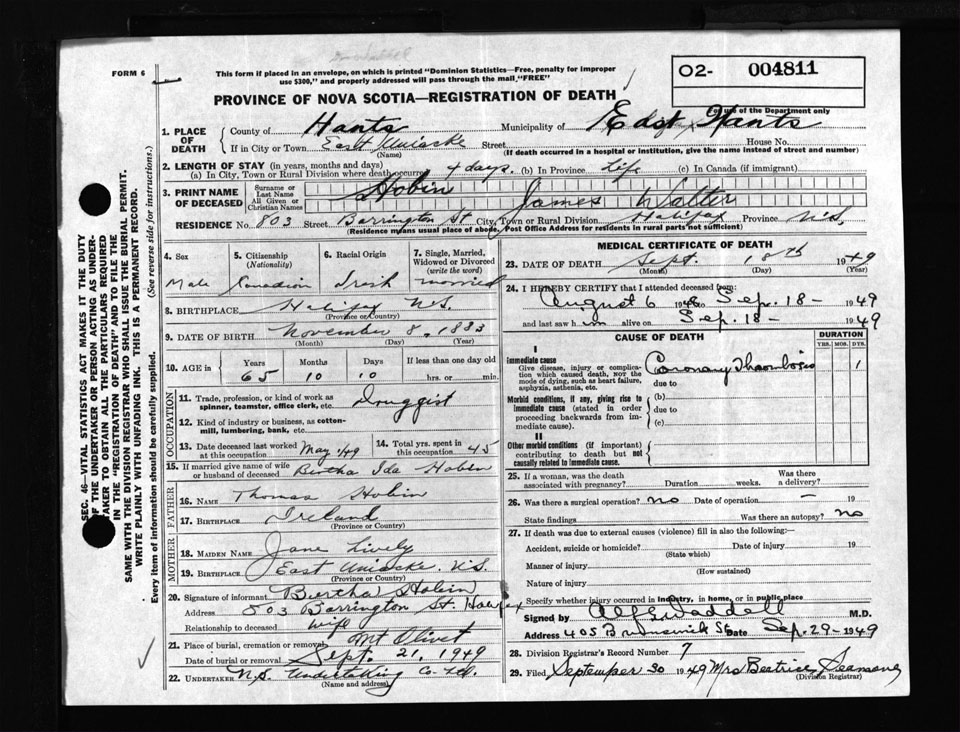 FORM 6
This form if placed in an envelope, on which is printed "Dominion Statistics—Free, penalty for improper
use $300," and properly addressed will pass through the mail, "FREE"
O2- 004811
For use of the Department only
PROVINCE OF NOVA SCOTIA—REGISTRATION OF DEATH
1. PLACE OF DEATH
County of Hants Municipality of East Hants
If in City or Town East Uniacke Street House No.
(Name) (If death occurred in a hospital or institution, give the name instead of street and number)
2. LENGTH OF STAY (in years, months and days)
(a) In City, Town or Rural Division where death occurred 4 days. (b) In Province Life (c) In Canada (if immigrant)
3. PRINT NAME OF DECEASED
Surname or Last Name Hobin
All Given or Christian Names James Walter
RESIDENCE No. 803 Street Barrington St City, Town or Rural Division Halifax Province N.S.
(Residence means usual place of abode. Post Office Address for residents in rural parts not sufficient)
4. Sex 5. Citizenship (Nationality) 6. Racial Origin 7. Single, Married, Widowed or Divorced (write the word)
Male Canadian Irish married
8. BIRTHPLACE Halifax N.S.
(Province or Country)
9. DATE OF BIRTH November 8, 1883
(Month) (Day) (Year)
10. AGE in Years Months Days If less than one day old
65 10 10 hrs. or min.
OCCUPATION
11. Trade, profession, or kind of work as spinner, teamster, office clerk, etc. Druggist
12. Kind of industry or business, as cotton-mill, lumbering, bank, etc.
13. Date deceased last worked at this occupation May /49 14. Total yrs. spent in this occupation 45
15. If married give name of wife or husband of deceased Bertha Ida Hobin
FATHER
16. NAME Thomas Hobin
17. BIRTHPLACE Ireland
(Province or Country)
MOTHER
18. MAIDEN NAME Jane Lively
19. BIRTHPLACE East Uniacke, N.S.
(Province or Country)
20. Signature of informant Bertha Hobin
Address 803 Barrington St. Halifax
Relationship to deceased wife
21. Place of burial, cremation or removal Mt Olivet
Date of burial or removal Sept. 21, 1949
22. UNDERTAKER N.S. Undertaking Co Ltd.
(Name and address)
MEDICAL CERTIFICATE OF DEATH
23. DATE OF DEATH Sept. 18th 1949
(Month) (Day) (Year)
24. I HEREBY CERTIFY that I attended deceased from:
August 6 1948 Sep. 18- 1949
and last saw him alive on Sep. 18- 1949
CAUSE OF DEATH DURATION
YRS. MOS. DYS.
I
Immediate cause (a) Coronary Thrombosis 1
Give disease, injury or complication which caused death, not the mode of dying, such as heart failure, asphyxia, asthenia, etc.
due to
Morbid conditions, if any, giving rise to immediate cause (stated in order proceeding backwards from immediate cause).
(b)
due to
(c)
II
Other morbid conditions (if important) contributing to death but not causally related to immediate cause.
25. If a woman, was the death associated with pregnancy? Duration weeks. Was there a delivery?
26. Was there a surgical operation? no Date of operation — 19
State findings Was there an autopsy? no
27. If death was due to external causes (violence) fill in also the following:—
Accident, suicide or homicide? Date of injury 19
(State which)
Manner of injury
(How sustained)
Nature of injury
Specify whether injury occurred in industry, in home, or in public place
Signed by Alf G Waddell M.D.
Address 405 Brunswick St Date Sep. 29- 1949
28. Division Registrar's Record Number 7
29. Filed September 30 1949 Mrs Beatrice Seamone
(Division Registrar)
SEC. 46—VITAL STATISTICS ACT MAKES IT THE DUTY
OF THE UNDERTAKER OR PERSON ACTING AS UNDER-
TAKER TO OBTAIN ALL THE PARTICULARS REQUIRED
IN THE "REGISTRATION OF DEATH" AND TO FILE THE
SAME WITH THE DIVISION REGISTRAR WHO SHALL ISSUE THE BURIAL PERMIT.
WRITE PLAINLY WITH UNFADING INK. THIS IS A PERMANENT RECORD.
Every item of information should be carefully supplied. (See reverse side for instructions.)